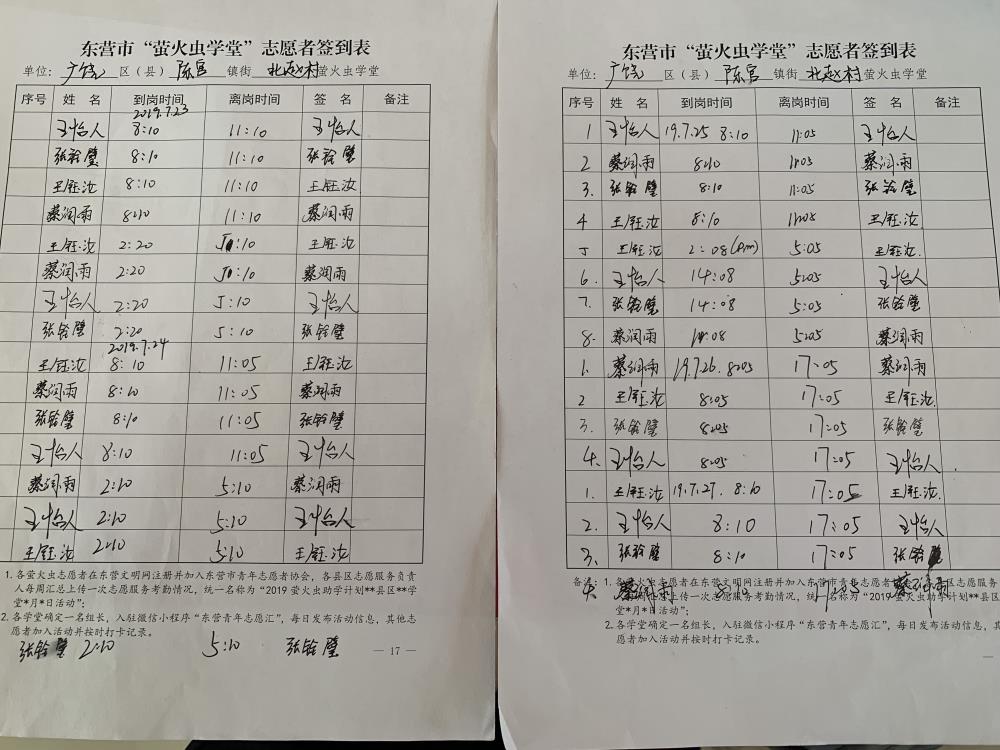 东营市“萤火虫学堂”志愿者签到表
单位：广饶 区（县） 陈官 镇街 北赵村 萤火虫学堂
序号 姓 名 到岗时间 离岗时间 签 名 备注
2019.7.23
王怡人 8:10 11:10 王怡人
张铨璧 8:10 11:10 张铨璧
王钰汝 8:10 11:10 王钰汝
蔡润雨 8:10 11:10 蔡润雨
王钰汝 2:20 5:10 王钰汝
蔡润雨 2:20 5:10 蔡润雨
王怡人 2:20 5:10 王怡人
张铨璧 2:20 5:10 张铨璧
2019.7.24
王钰汝 8:10 11:05 王钰汝
蔡润雨 8:10 11:05 蔡润雨
张铨璧 8:10 11:05 张铨璧
王怡人 8:10 11:05 王怡人
蔡润雨 2:10 5:10 蔡润雨
王怡人 2:10 5:10 王怡人
王钰汝 2:10 5:10 王钰汝
1. 各萤火虫志愿者在东营文明网注册并加入东营市青年志愿者协会，各县区志愿服务负责
人每周汇总上传一次志愿服务考勤情况，统一名称为“2019 萤火虫助学计划**县区**学
堂*月*日活动”；
2. 各学堂确定一名组长，入驻微信小程序“东营青年志愿汇”，每日发布活动信息，其他志
愿者加入活动并按时打卡记录。
张铨璧 2:10 5:10 张铨璧
— 17 —
东营市“萤火虫学堂”志愿者签到表
单位：广饶 区（县） 陈官 镇街 北赵村 萤火虫学堂
序号 姓 名 到岗时间 离岗时间 签 名 备注
1 王怡人 19.7.25 8:10 11:05 王怡人
2 蔡润雨 8:10 11:05 蔡润雨
3. 张铨璧 8:10 11:05 张铨璧
4 王钰汝 8:10 11:05 王钰汝
5 王钰汝 2:08(pm) 5:05 王钰汝.
6. 王怡人 14:08 5:05 王怡人
7. 张铨璧 14:08 5:05 张铨璧
8. 蔡润雨 14:08 5:05 蔡润雨
1. 蔡润雨 19.7.26. 8:05 17:05 蔡润雨
2 王钰汝 8:05 17:05 王钰汝.
3. 张铨璧 8:05 17:05 张铨璧
4. 王怡人 8:05 17:05 王怡人
1. 王钰汝 19.7.27. 8:10 17:05 王钰汝.
2. 王怡人 8:10 17:05 王怡人
3. 张铨璧 8:10 17:05 张铨璧
4. 蔡润雨 8:10 17:05 蔡润雨
备注：1. 各萤火虫志愿者在东营文明网注册并加入东营市青年志愿者 区志愿服务
上传一次志愿服务考勤情况，统一名称为“2019 萤火虫助学计划**县区
*月*日活动”；
2. 各学堂确定一名组长，入驻微信小程序“东营青年志愿汇”，每日发布活动信息，其
愿者加入活动并按时打卡记录。